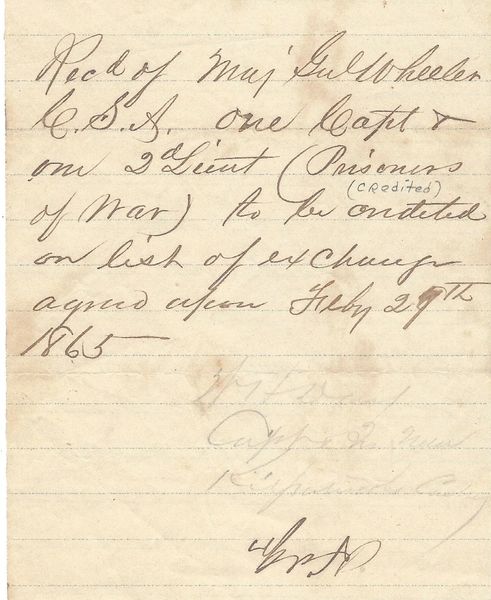 Recd of Maj Genl Wheeler
C.S.A. one Capt &
one 2d Lieut (Prisoners
(credited)
of War) to be credited
on list of exchange
agreed upon Feby 27th
1865
Capt